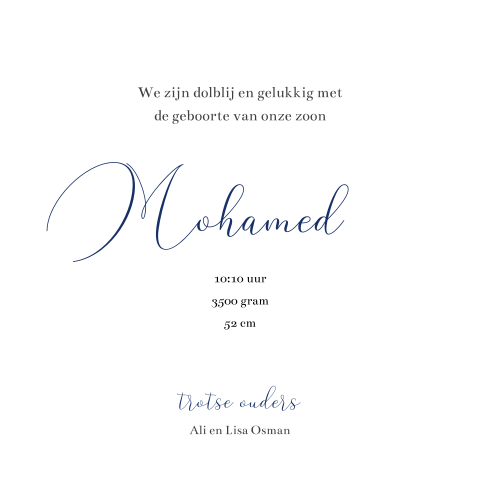 We zijn dolblij en gelukkig met
de geboorte van onze zoon
Mohamed
10:10 uur
3500 gram
52 cm
trotse ouders
Ali en Lisa Osman